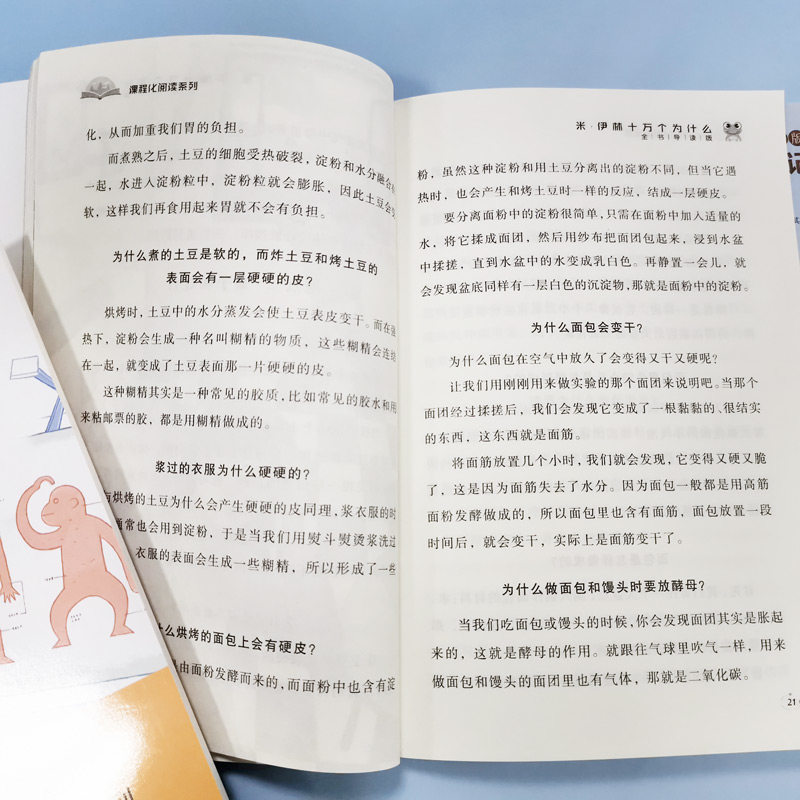 课程化阅读系列
化，从而加重我们胃的负担。
而煮熟之后，土豆的细胞受热破裂，淀粉和水分融合
一起，水进入淀粉粒中，淀粉粒就会膨胀，因此土豆会
软，这样我们再食用起来胃就不会有负担。
为什么煮的土豆是软的，而炸土豆和烤土豆的
表面会有一层硬硬的皮？
烘烤时，土豆中的水分蒸发会使土豆表皮变干。而在
热下，淀粉会生成一种名叫糊精的物质，这些糊精会连
在一起，就变成了土豆表面那一片硬硬的皮。
这种糊精其实是一种常见的胶质，比如常见的胶水和用
来粘邮票的胶，都是用糊精做成的。
浆过的衣服为什么硬硬的？
与烘烤的土豆为什么会产生硬硬的皮同理，浆衣服的时
通常也会用到淀粉，于是当我们用熨斗熨烫浆洗过
衣服的表面会生成一些糊精，所以形成了一些
么烘烤的面包上会有硬皮？
是由面粉发酵而来的，而面粉中也含有淀
米·伊林十万个为什么
全书导读版
粉，虽然这种淀粉和用土豆分离出的淀粉不同，但当它遇
热时，也会产生和烤土豆时一样的反应，结成一层硬皮。
要分离面粉中的淀粉很简单，只需在面粉中加入适量的
水，将它揉成面团，然后用纱布把面团包起来，浸到水盆
中揉搓，直到水盆中的水变成乳白色。再静置一会儿，就
会发现盆底同样有一层白色的沉淀物，那就是面粉中的淀粉。
为什么面包会变干？
为什么面包在空气中放久了会变得又干又硬呢？
让我们用刚刚用来做实验的那个面团来说明吧。当那个
面团经过揉搓后，我们会发现它变成了一根黏黏的、很结实
的东西，这东西就是面筋。
将面筋放置几个小时，我们就会发现，它变得又硬又脆
了，这是因为面筋失去了水分。因为面包一般都是用高筋
面粉发酵做成的，所以面包里也含有面筋，面包放置一段
时间后，就会变干，实际上是面筋变干了。
为什么做面包和馒头时要放酵母？
当我们吃面包或馒头的时候，你会发现面团其实是胀起
来的，这就是酵母的作用。就跟往气球里吹气一样，用来
做面包和馒头的面团里也有气体，那就是二氧化碳。
21